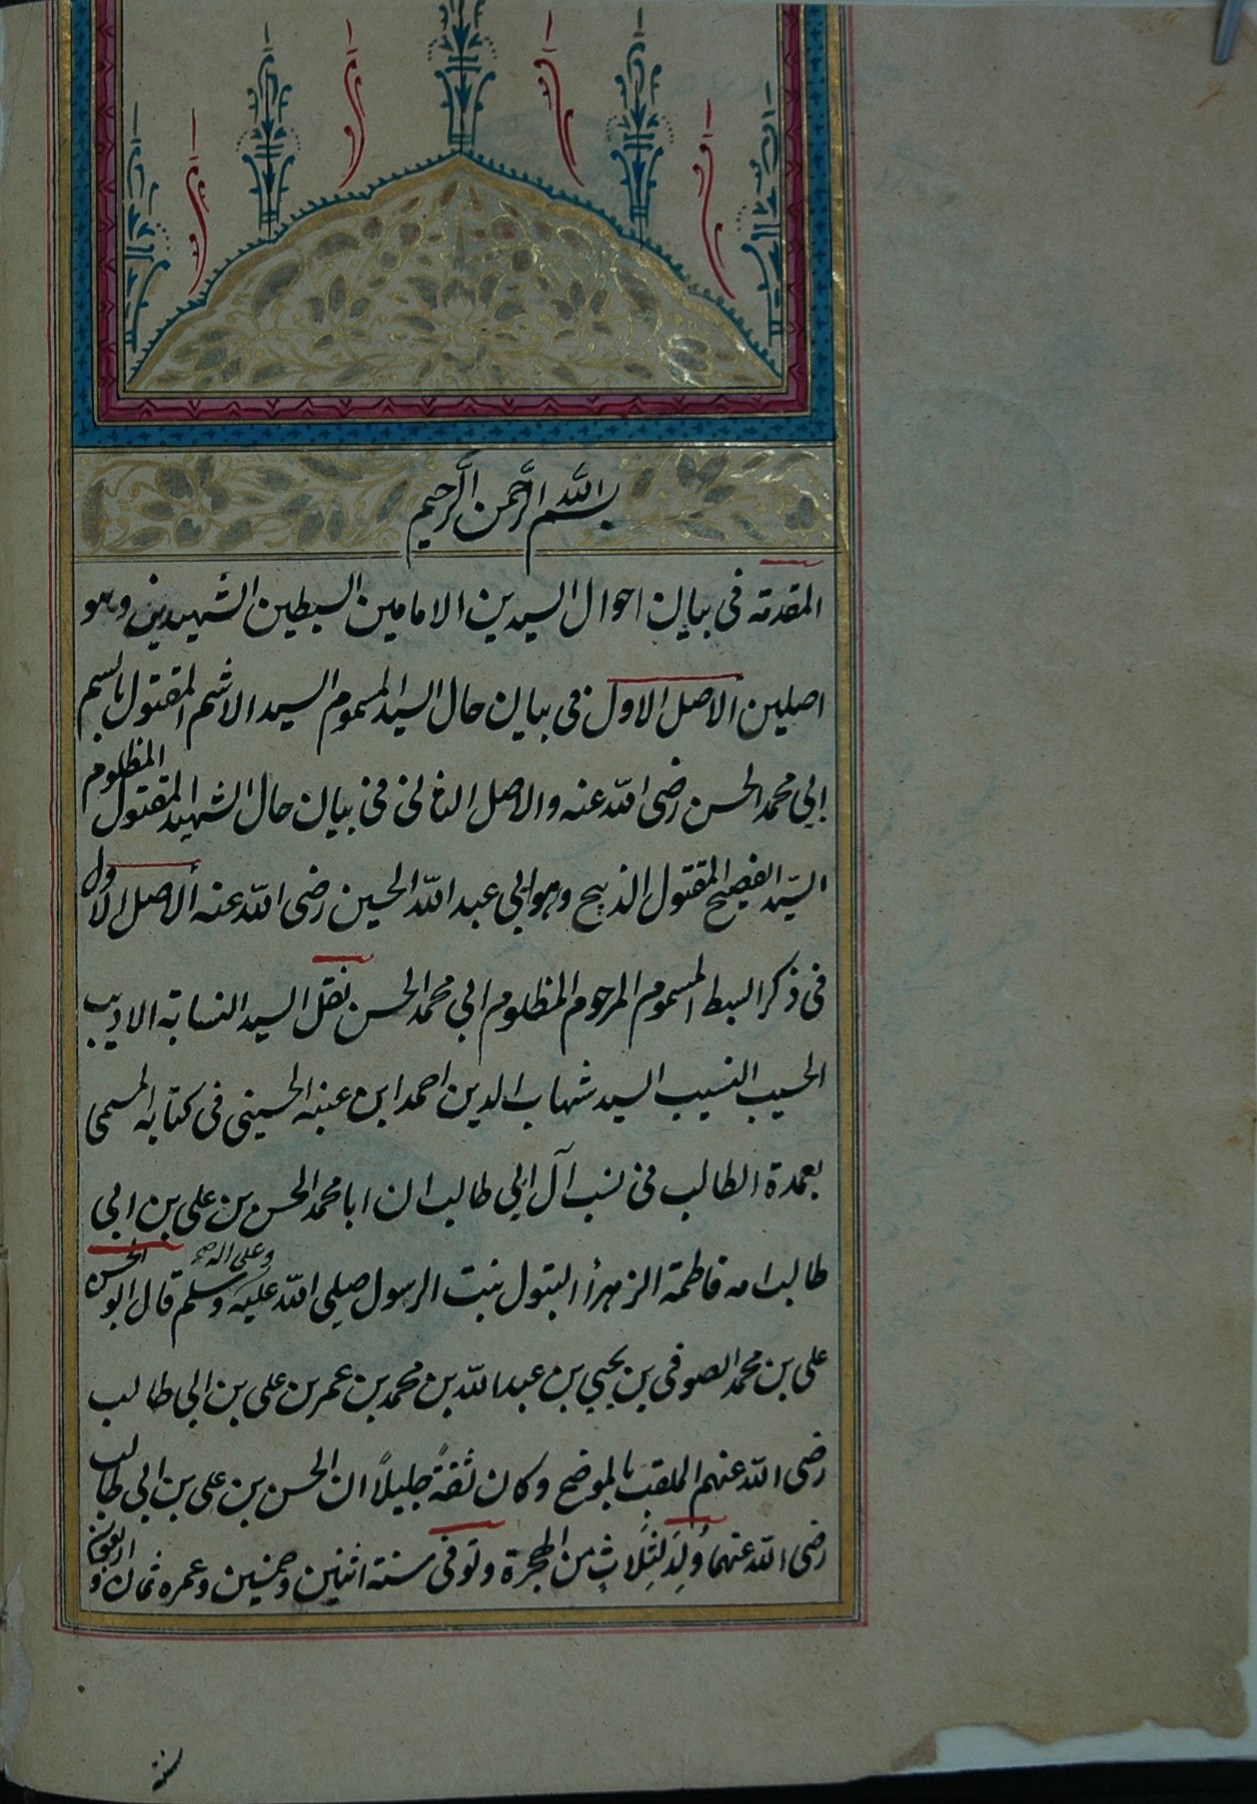 بسم الله الرحمن الرحيم
المقدمة فى بيان احوال السيدين الامامين السبطين الشهيدين وهو
اصلين الاصل الاول فى بيان حال السيد المسموم السيد الاشم المقتول بالسم
ابي محمد الحسن رضى الله عنه والاصل الثانى فى بيان حال الشهيد المقتول المظلوم
السيّد الفصيح المقتول الذبيح وهو ابى عبد الله الحسين رضى الله عنه الاصل الاول
فى ذكر السبط المسموم المرحوم المظلوم ابي محمد الحسن نقل السيد النسابة الاديب
الحسيب النسيب السيد شهاب الدين احمد ابن عنبه الحسينى فى كتابه المسمى
بعمدة الطالب فى نسب آل ابي طالب ان ابا محمد الحسن بن على بن ابي
طالب امه فاطمة الزهرأ البتول بنت الرسول صلى الله عليه وعلى اله وسلم قال ابو الحسن
على بن محمد الصوفى بن يحيي بن عبد الله بن محمد بن عمر بن على بن ابى طالب
رضى الله عنهم الملقب بالموضح وكان ثقةً جليلاً ان الحسن بن على بن ابى طالب
رضى الله عنهما وُلِدَ لثلاثٍ من الهجرة وتوفى سنة اثنين وخمسين وعمره ثمان واربعون
سنة